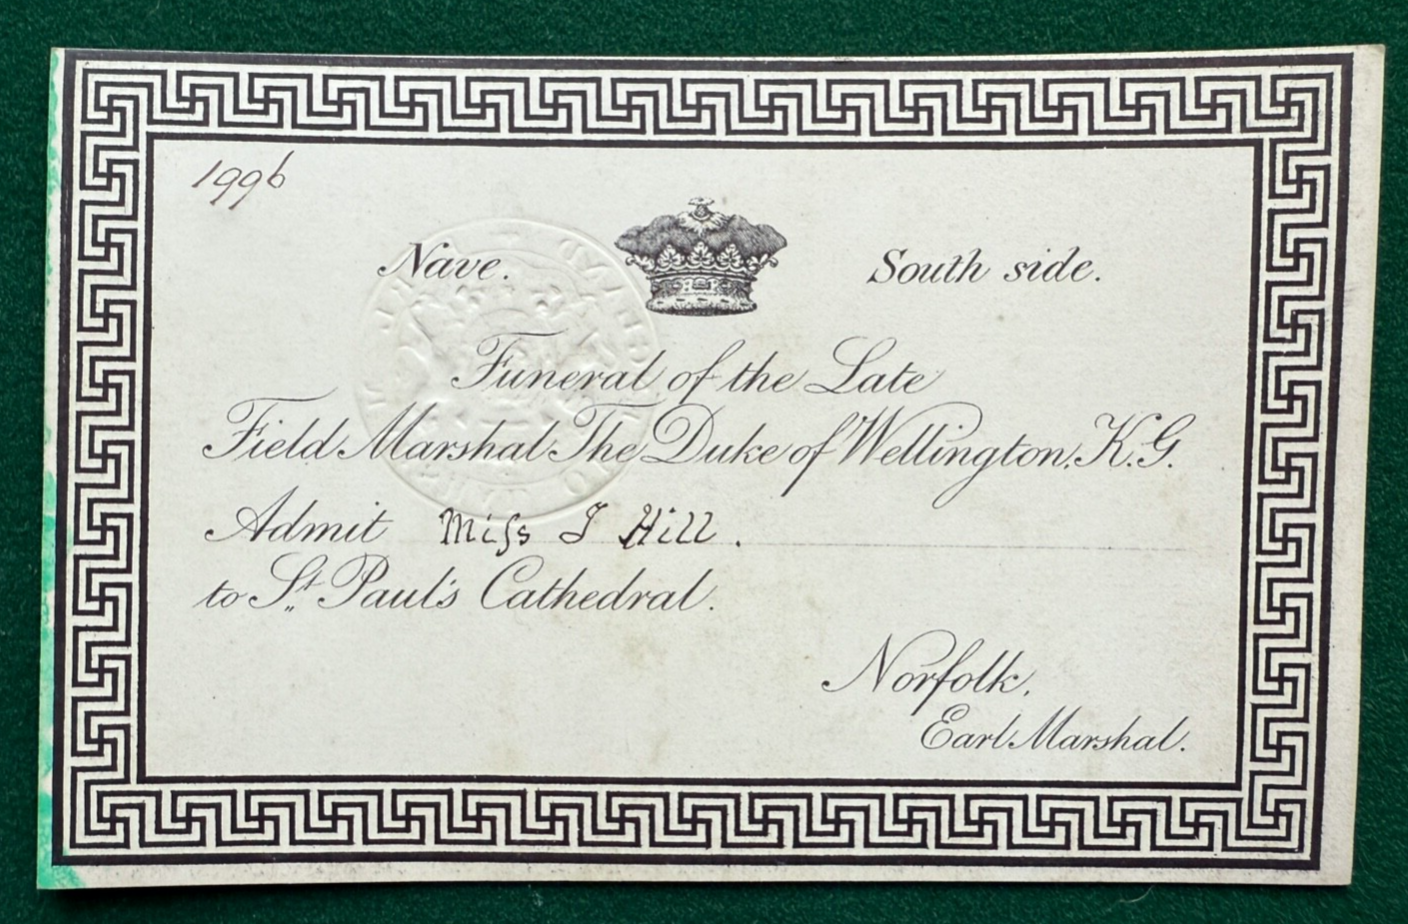 1996
Nave. South side.
Funeral of the Late
Field Marshal The Duke of Wellington, K.G.
Admit Miſs J Hill.
to St. Paul's Cathedral.
Norfolk,
Earl Marshal.